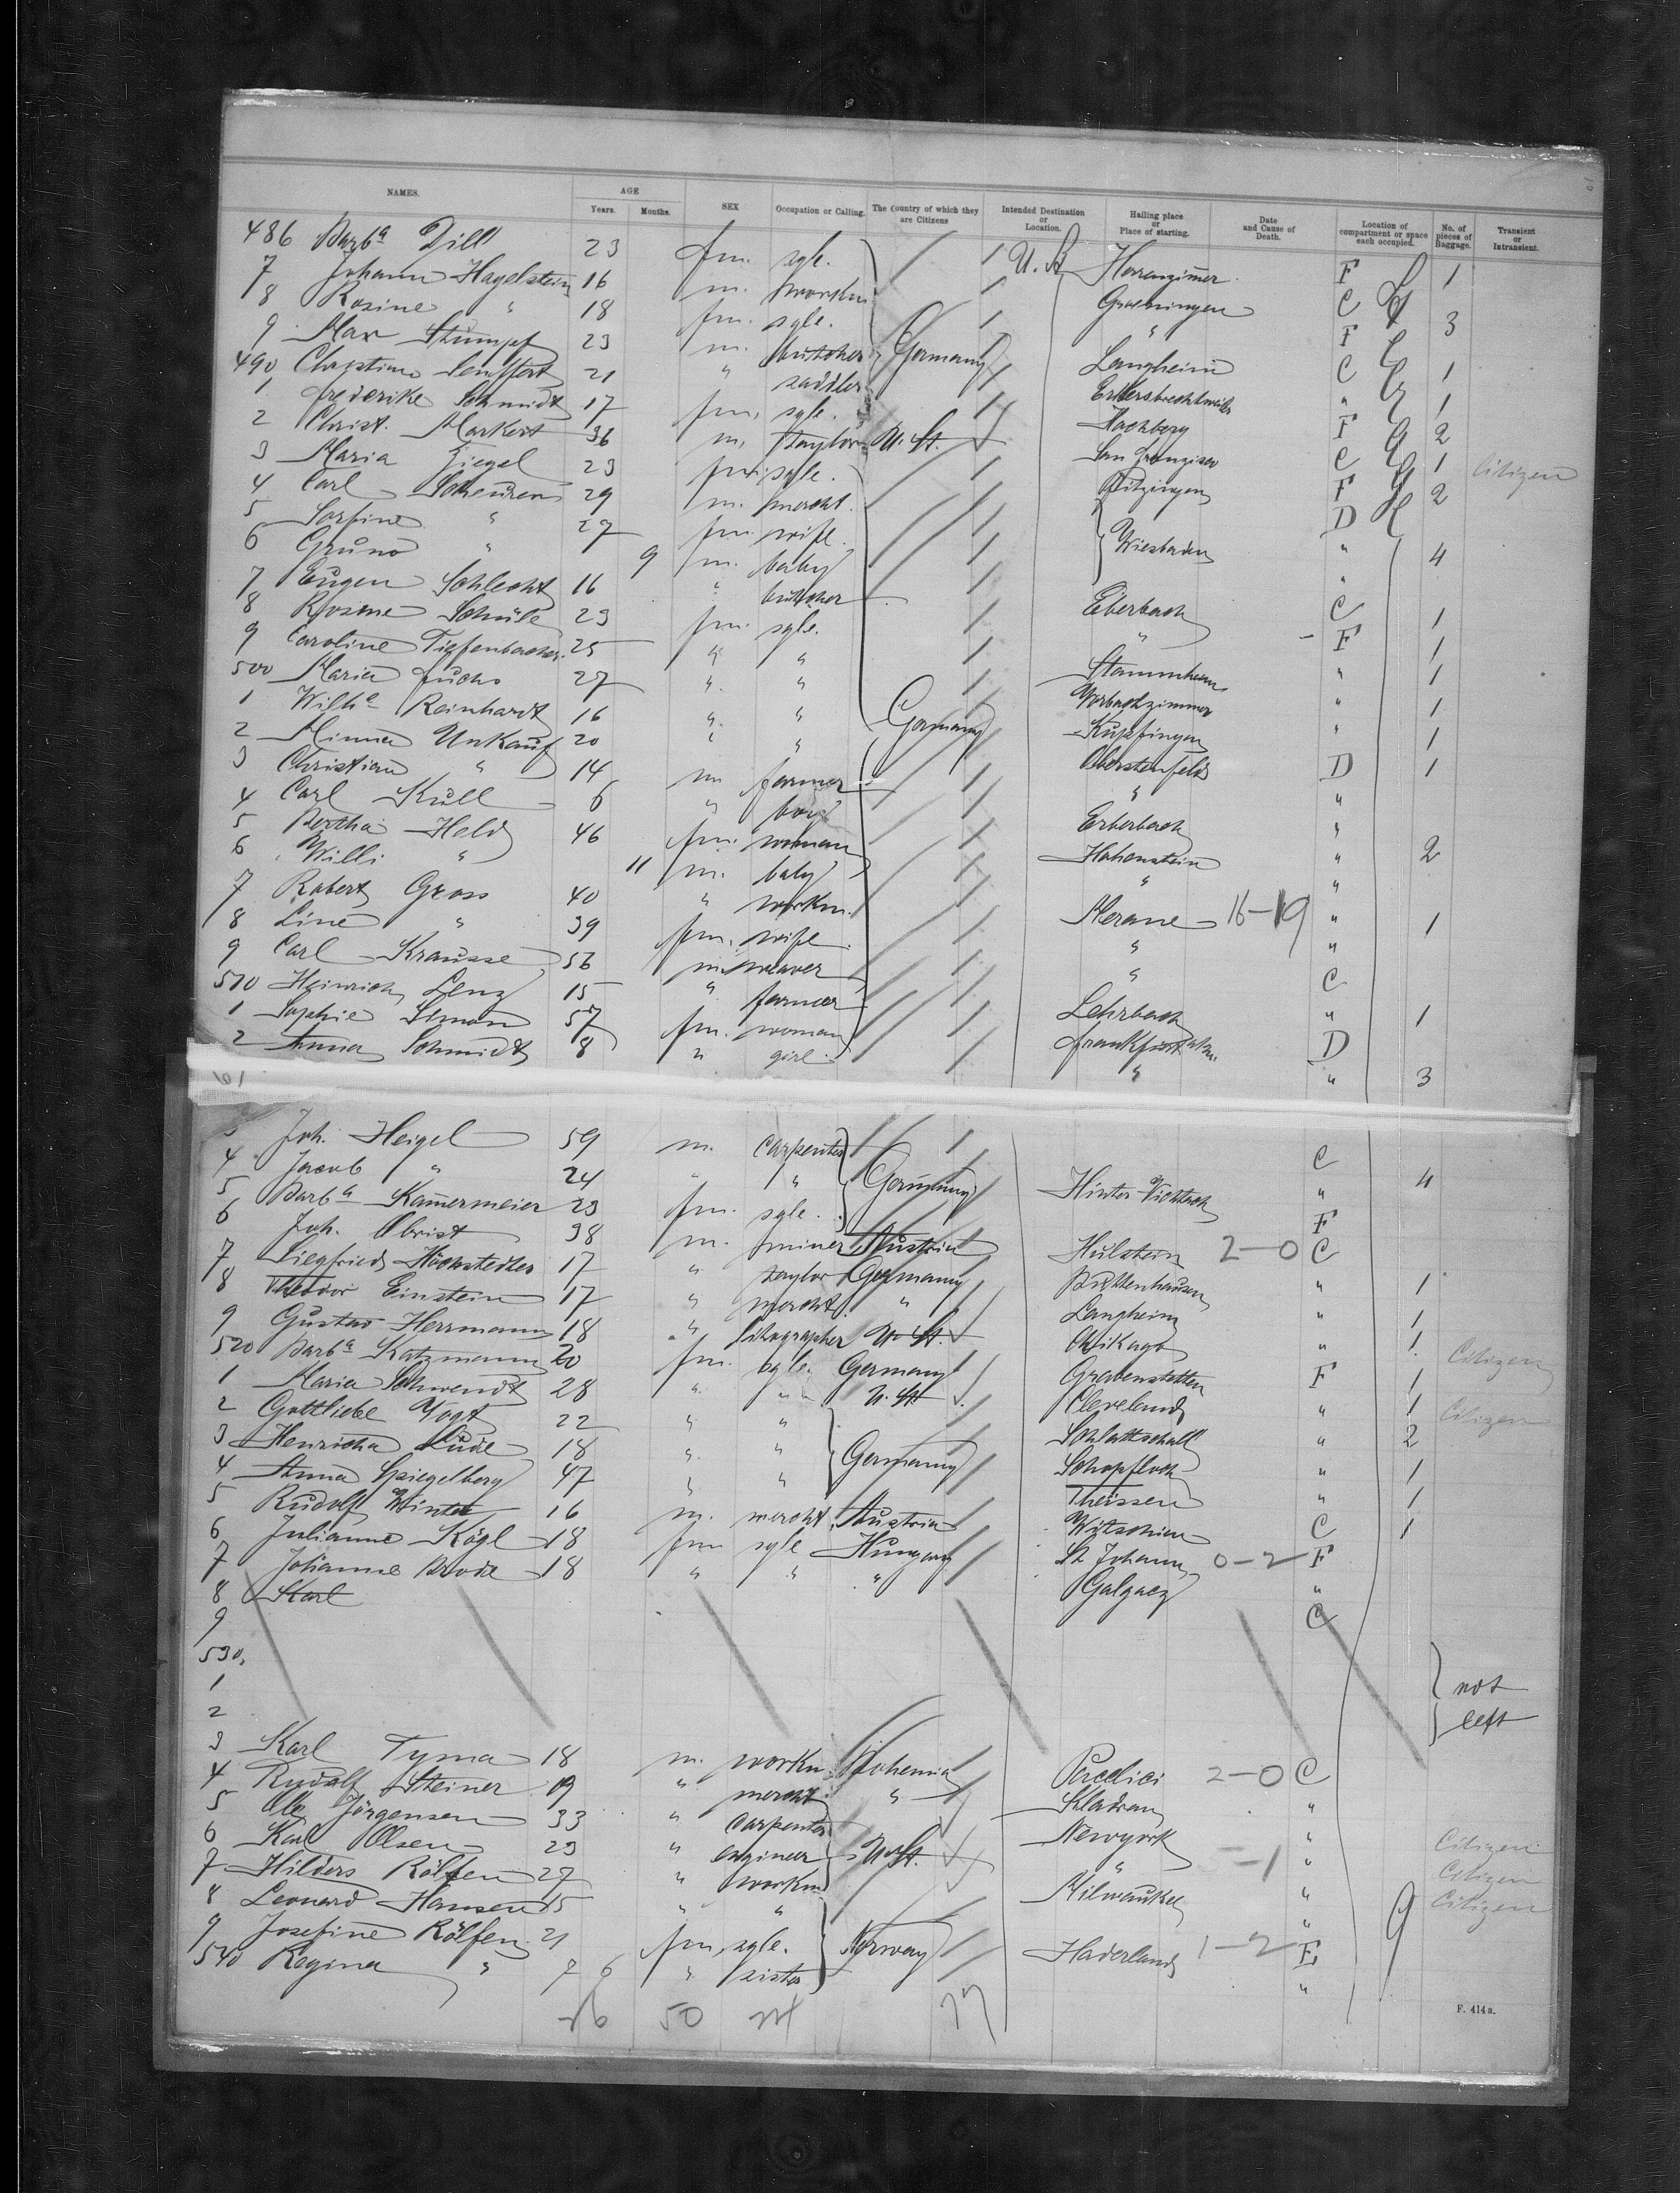 NAMES. AGE Years. Months. SEX Occupation or Calling. The Country of which they are Citizens Intended Destination or Location. Hailing place or Place of starting. Date and Cause of Death. Location of compartment or space each occupied. No. of pieces of Baggage. Transient or Intransient.
486 Barbª Dill 23 fm. sgle. U. St Herrenzimer F 1
7 Johann Hagelstein 16 m. workm. Groeningen C
8 Rosine " 18 fm. sgle. " F 3
9 Max Stumpf 23 m. butcher Germany Langheim C 1
490 Christian 21 " saddler " 1
1 Frederike Schmidt 17 fm. sgle. Hachberg F 2
2 Christ. Markert 36 m. taylor U. St. San Franzisco C 1 Citizen
3 Maria Ziegel 23 fm. sgle. Kitzingen F 2
4 Carl 29 m. mercht. Wiesbaden D
5 " 27 fm. wife " 4
6 " 9 m. baby "
7 Eugen Schlecht 16 " butcher Eberbach C 1
8 Rosine Schüle 23 fm. sgle. " F 1
9 Caroline Tiefenbacher 25 " " Stammheim " 1
500 Maria Fuchs 27 " " Vorbachzimmer " 1
1 Wilhª Reinhardt 16 " " Germany Kupfingen " 1
2 Minna Unkauf 20 " " Oberstenfeld " 1
3 Christian " 14 m farmer " D
4 Carl Küll 6 " boy "
5 Bertha Held 46 fm. woman Hohenstein " 2
6 Willi " 11 m. baby " "
7 Robert Gross 40 " workm. Merane 16-19 " 1
8 Line " 39 fm. wife " "
9 Carl Krausse 56 m. weaver " C
510 Heinrich Lenz 15 " farmer Lehrbach " 1
1 Sophie Simon 57 fm. woman Frankfurt D
2 Anna Schmidt 8 " girl " " 3
161
3 Joh. Heigel 59 m. carpenter C
4 Jacob " 24 " " Germany Hinter Viechtach " 4
5 Barbª Kamermeier 23 fm. sgle. F
6 Joh. Obrist 38 m. miner Austria Hulstein 2-0 C
7 Siegfried Höchstedter 17 " taylor Germany Buttenhausen " 1
8 Theodor Einstein 17 " mercht. " Langheim " 1
9 Gustav Herrmann 18 " litographer U. St. Chikago " 1 Citizen
520 Barbª Katzmann 20 fm. sgle. Germany Grabenstetten F 1
1 Maria Schwendt 28 " " U. St. Cleveland " 1 Citizen
2 Gottliebe Vogt 22 " " " 2
3 18 " " Germany Schopfloch " 1
4 Anna Spiegelberg 47 " " Theissen " 1
5 Rudolf Winter 16 m. mercht. Austria C 1
6 Julianne Kögl 18 fm sgle Hungary St Johann 0-2 F
7 Johanne 18 " " " Galgacz "
8 Karl C
9
530
1 not
2 left
3 Karl Tyma 18 m. workm Bohemia 2-0 C
4 Rudolf Steiner 19 " mercht. " Kladrau "
5 Ole Jörgensen 33 " carpenter Newyork " Citizen
6 Karl Olsen 23 " engineer U. St. " -1 " Citizen
7 Hilders Rölfen 27 " workm Milwaukee " Citizen
8 Leonard Hansen 15 " " "
9 Josefine Rölfen 21 fm. sgle. Norway Haderland 1-2 E 9
540 Regina " 7 6 " sister "
50 77
F. 414 a.